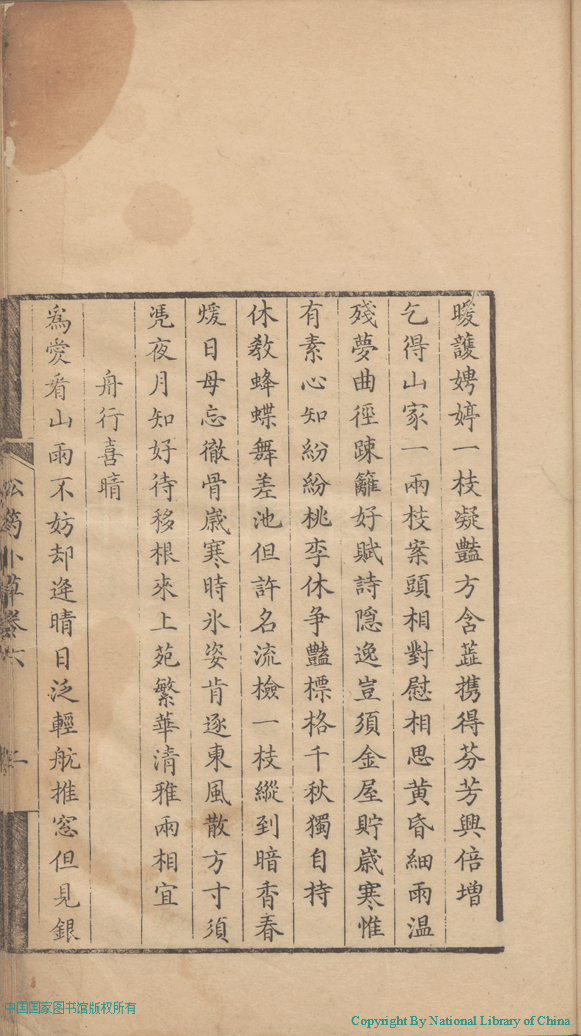 暖護娉婷一枝凝豔方含蕋携得芬芳興倍增
乞得山家一兩枝案頭相對慰相思黄昏細雨温
殘夢曲徑踈籬好賦詩隠逸豈須金屋貯嵗寒惟
有素心知紛紛桃李休争豔標格千秋獨自持
休教蜂蝶舞差池但許名流撿一枝縱到暗香春
煖日毋忘徹骨嵗寒時氷姿肯逐東風散方寸須
凴夜月知好待移根來上苑繁華清雅兩相宜
舟行喜晴
爲愛看山雨不妨却逢晴日泛輕航推窓但見銀
小草卷六
中国国家图书馆版权所有
Copyright By National Library of China